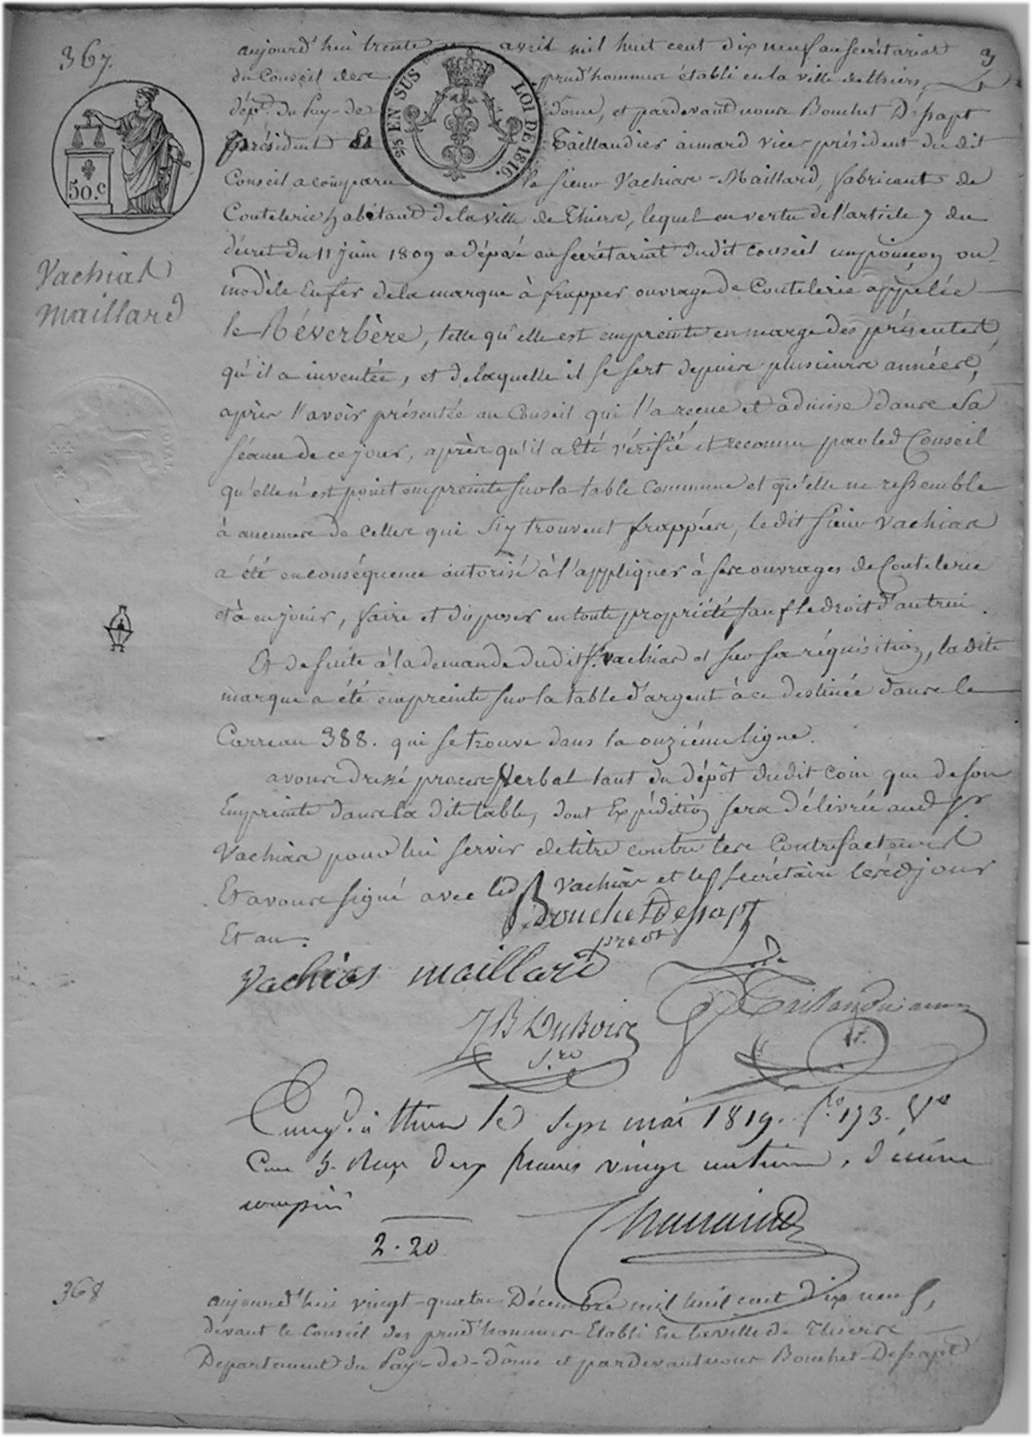 367.
aujourd'hui trente avril mil huit cent dix neuf au secrétariat
3
du Conseil des prud'hommes établi en la ville de Thiers,
25 EN SUS LOI DE 1816.
dépt. du Puy-de dôme, et pardevant nous Bouchet Dessapt
président Et Taillandier aimard vice président du dit
50.c
Conseil a comparu le sieur Vachias-Maillard, fabricant de
Coutelerie habitant de la ville de Thiers, lequel en vertu de l'article 7 du
décret du 11 juin 1809 a déposé au secrétariat dudit conseil un poinçon ou
Vachias
Maillard
modèle En fer de la marque à frapper ouvrage de Coutelerie appelée
le Réverbère, telle qu'elle est empreinte en marge des présentes,
qu'il a inventée, et de laquelle il se sert depuis plusieurs années,
après l'avoir présentée au Conseil qui l'a reçue et admise dans sa
séance de ce jour, après qu'il a Eté vérifié et reconnu par led Conseil
qu'elle n'est point empreinte sur la table Commune et qu'elle ne ressemble
à aucune de celles qui s'y trouvent frappées, le dit sieur Vachias
a été en conséquence autorisé à l'appliquer à ses ouvrages de Coutelerie
et à en jouir, faire et disposer en toute propriété sauf le droit d'autrui.
Et de suite à la demande dudit Sr. Vachias et sur sa réquisition, la dite
marque a été empreinte sur la table d'argent à ce destinée dans le
Carreau 388. qui se trouve dans la onzième ligne.
avons dressé procès-Verbal tant du dépôt dudit coin que de son
Empreinte dans la dite table, dont Expédition sera délivrée aud Sr
Vachias pour lui servir de titre contre les Contrefacteurs
Et avons signé avec led Sr Vachias et le Secrétaire lesd jour
Et an.
Bouchet Dessapt
prest
Vachias maillard
Taillandier
J B Dubois
Sre
Enreg. à thiers le Sept mai 1819. fo. 173. Vo
Case 3. Reçu deux francs vingt centimes, décime
compris
2.20
368
aujourd'hui vingt-quatre Décembre mil huit cent dix neuf,
dévant le Conseil des prud'hommes Etabli En la ville de Thiers
Departement du Puy-de-dôme et pardevant nous Bouchet-Dessapt